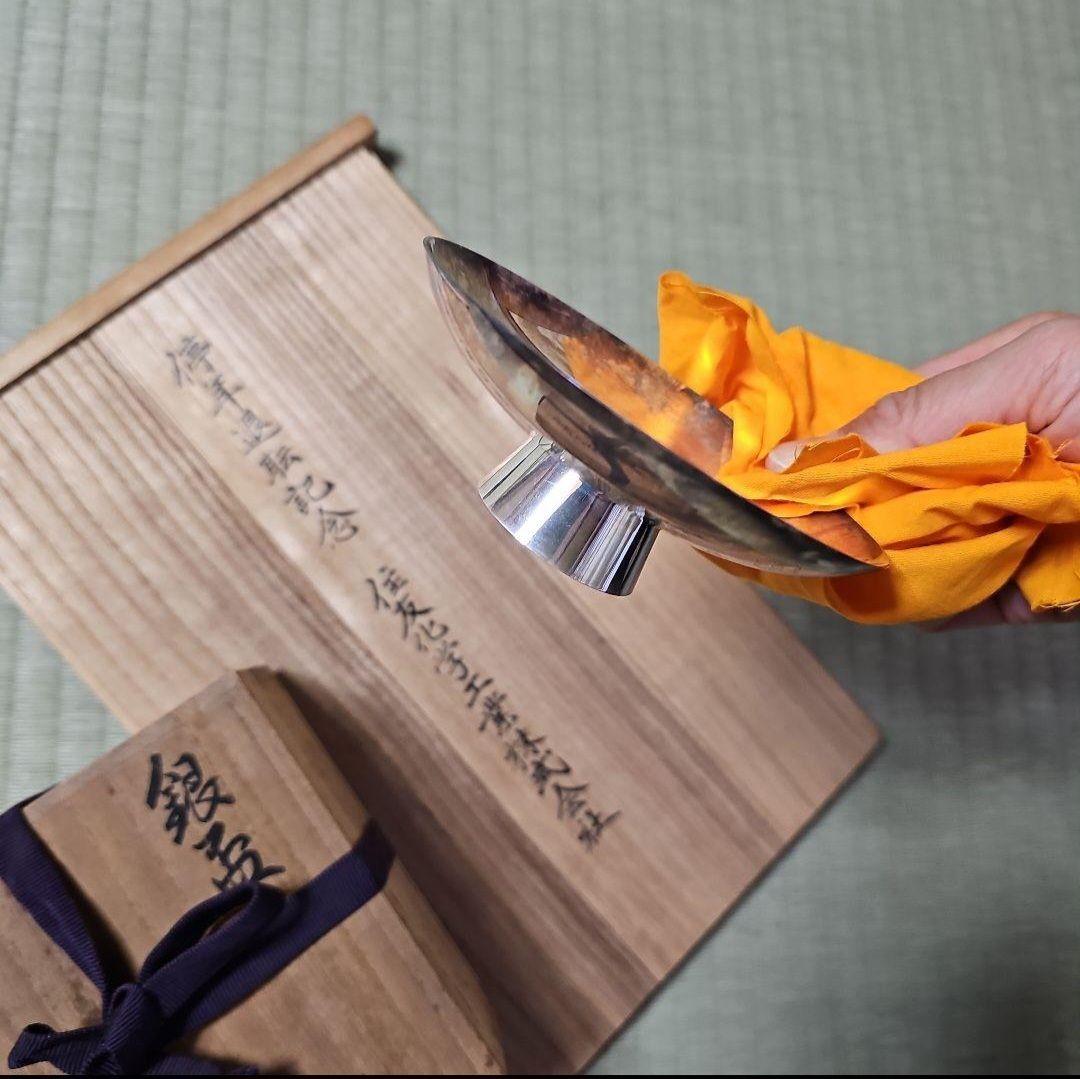 停年退職記念
住友化学工業株式会社
銀盃